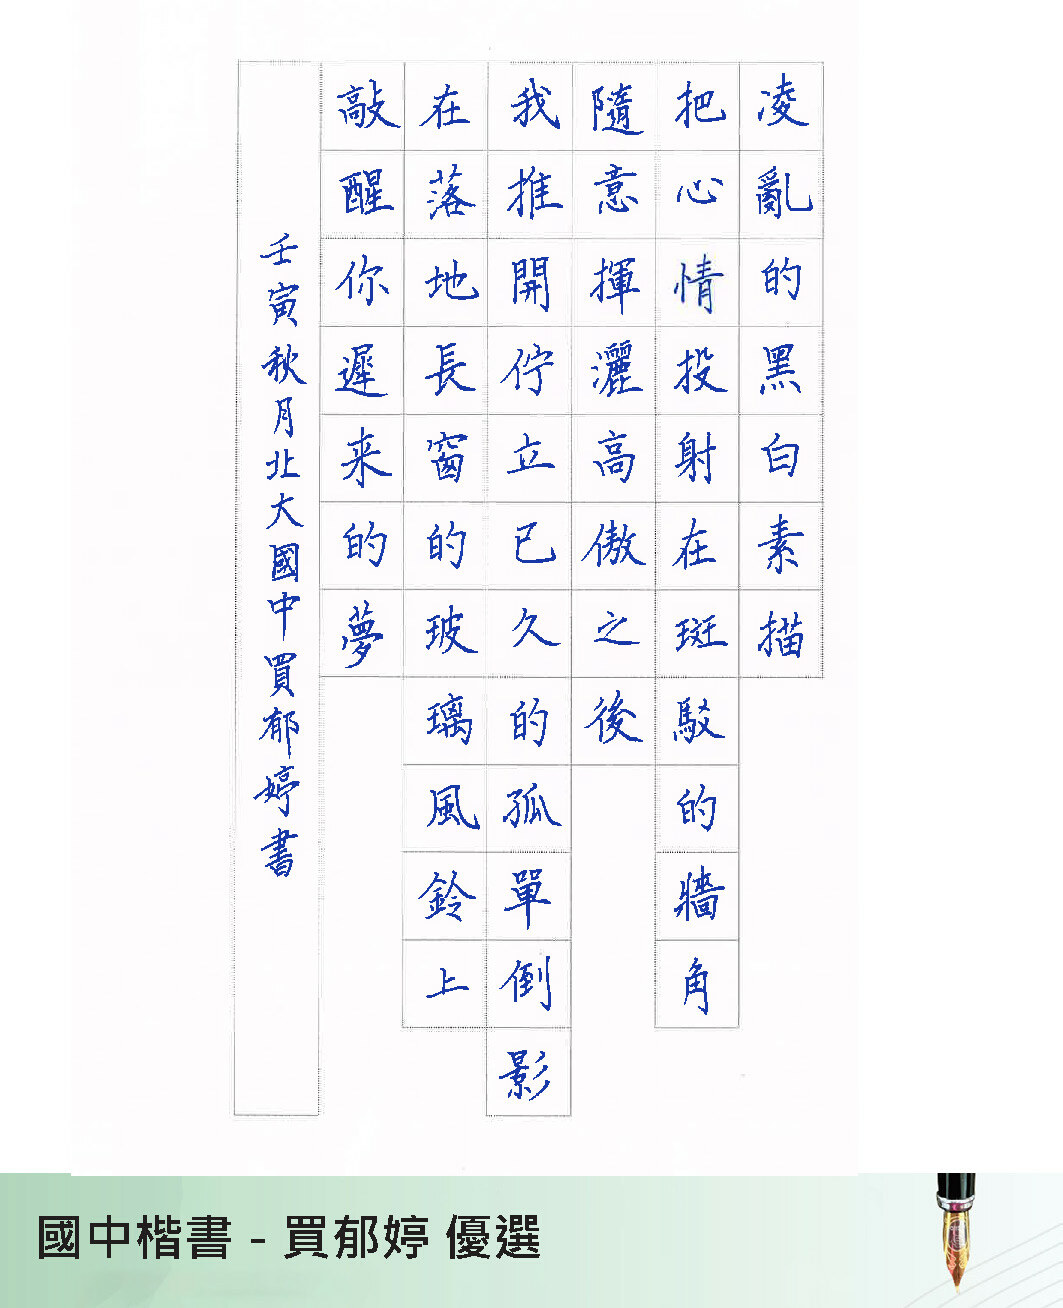 凌亂的黑白素描
把心情投射在斑駁的牆角
隨意揮灑高傲之後
我推開佇立已久的孤單倒影
在落地長窗的玻璃風鈴上
敲醒你遲来的夢
壬寅秋月北大國中買郁婷書
國中楷書 - 買郁婷 優選